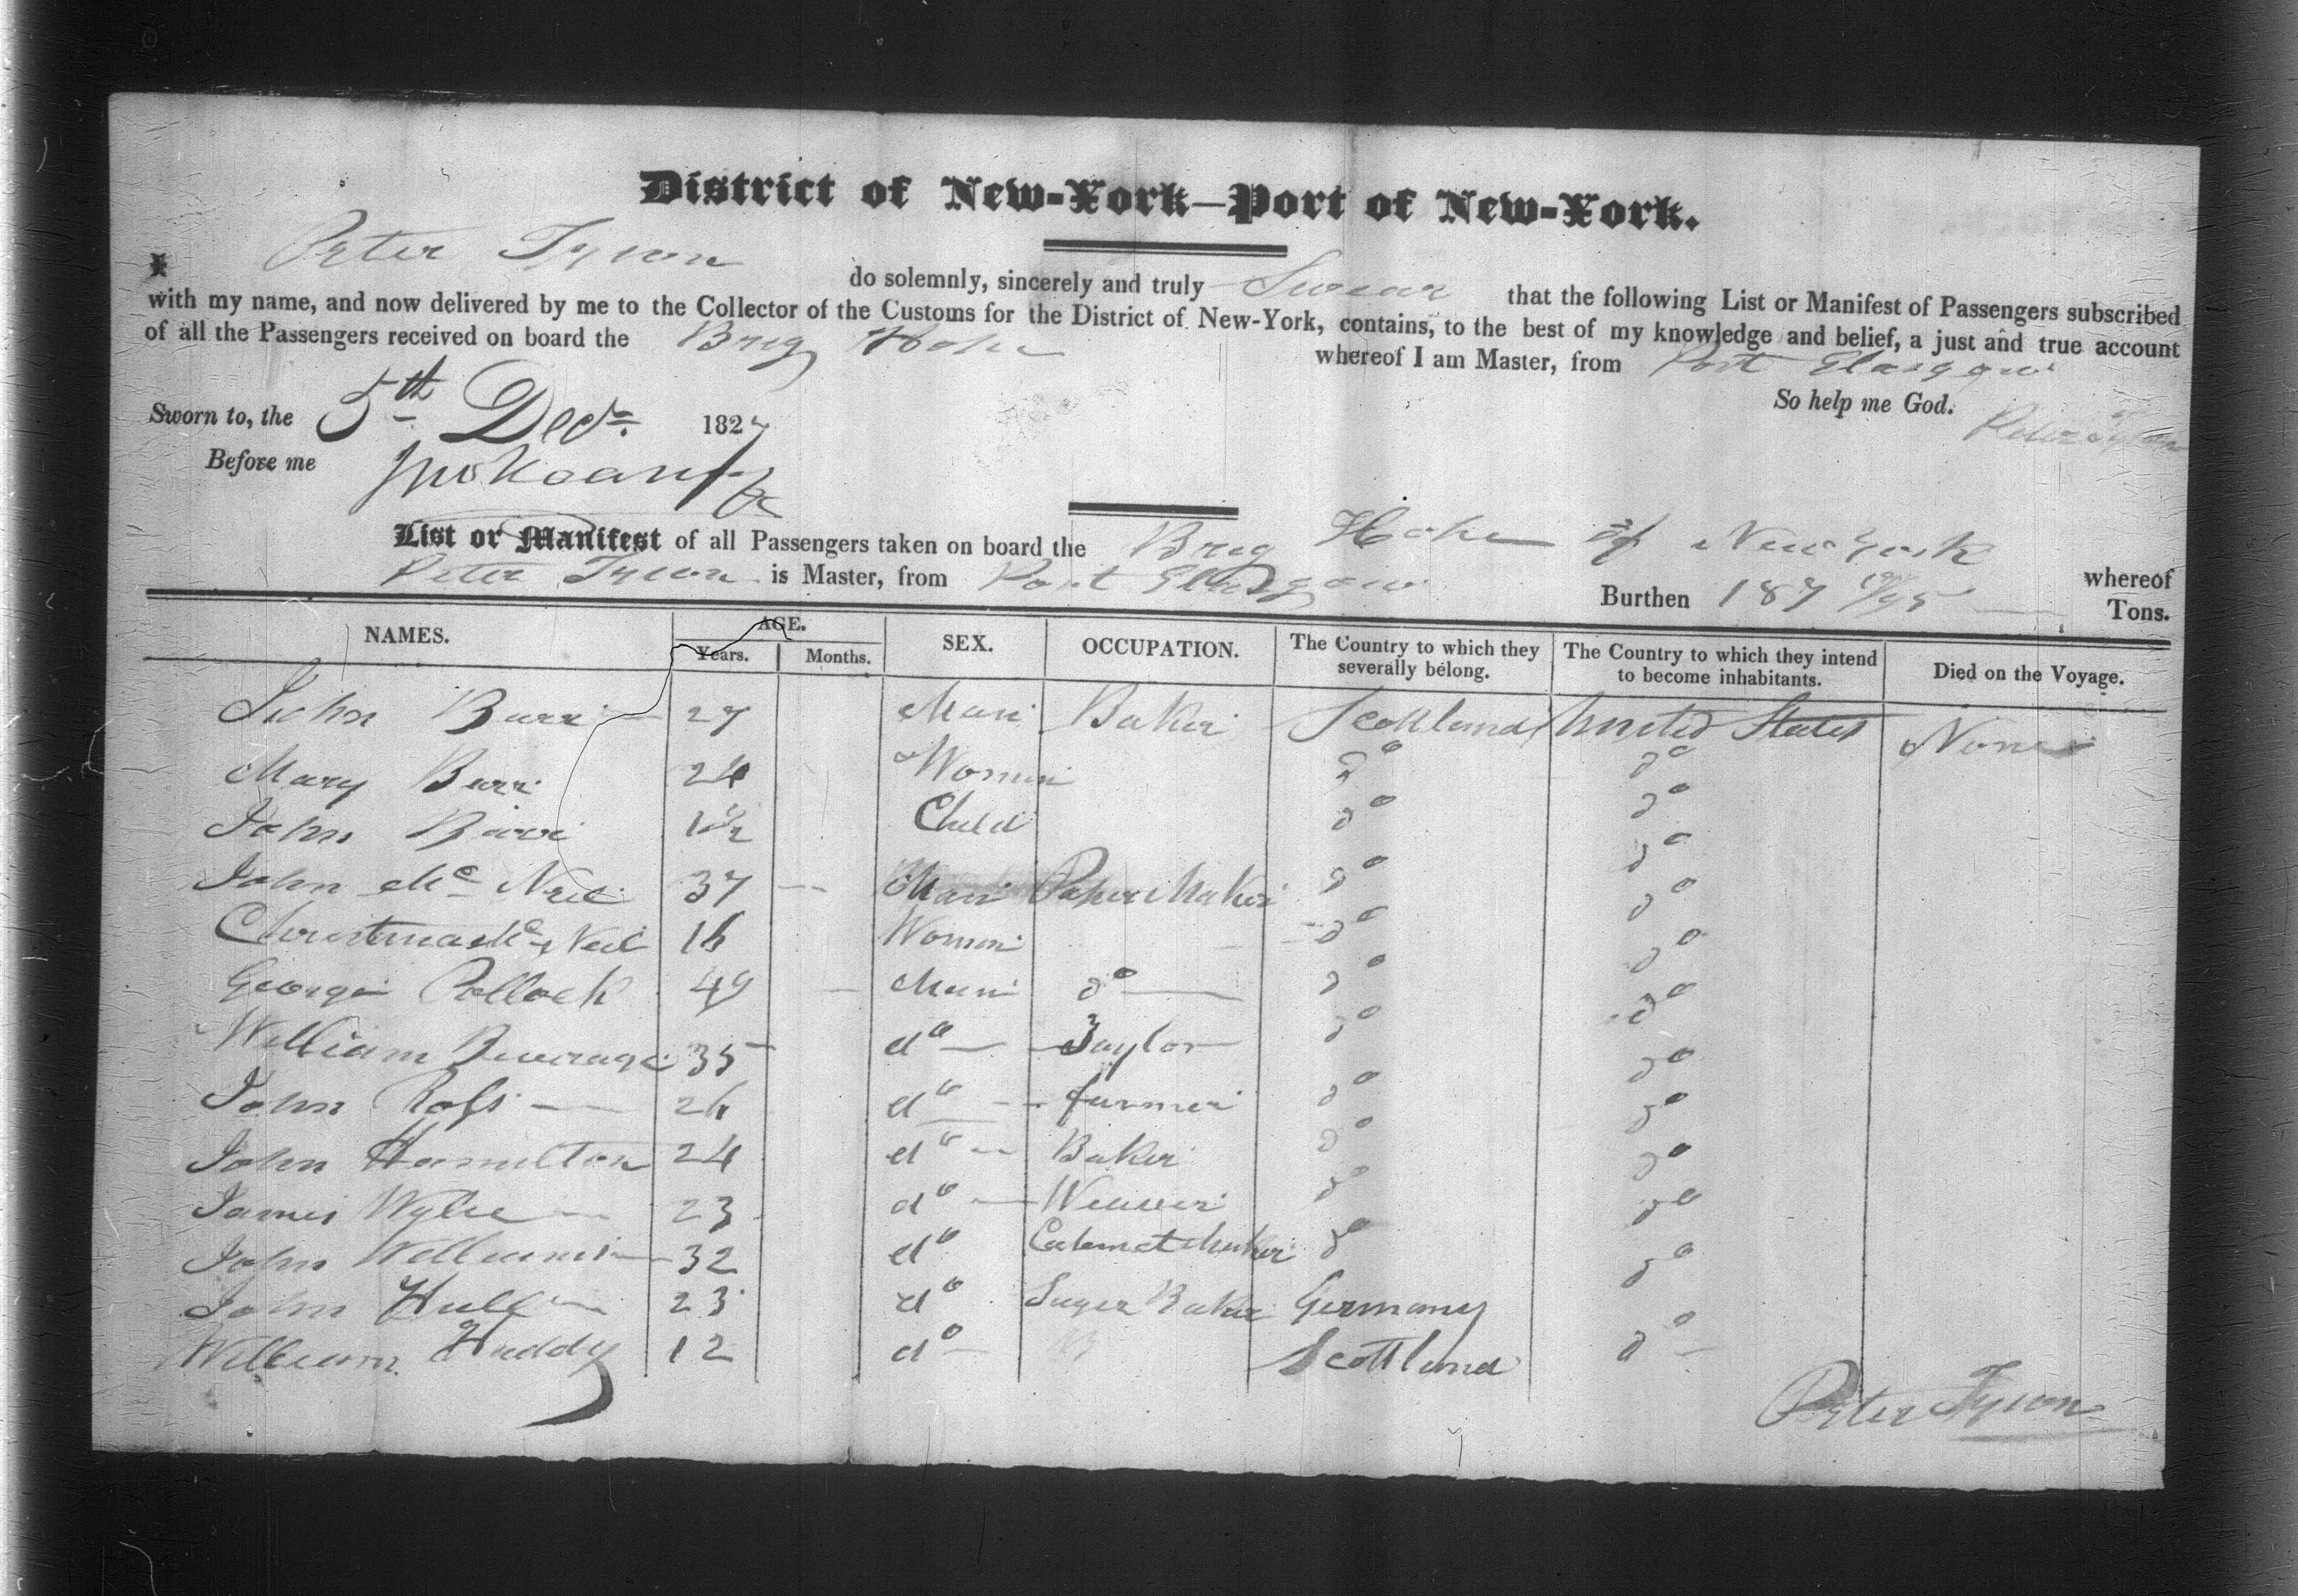 District of New-York—Port of New-York.
I Peter Tyson do solemnly, sincerely and truly Swear that the following List or Manifest of Passengers subscribed
with my name, and now delivered by me to the Collector of the Customs for the District of New-York, contains, to the best of my knowledge and belief, a just and true account
of all the Passengers received on board the Brig whereof I am Master, from Port Glasgow
So help me God.
Sworn to, the 5th Decr. 1827 Peter Tyson
Before me
List or Manifest of all Passengers taken on board the Brig of New York whereof
Peter Tyson is Master, from Port Glasgow Burthen 187 Tons.
NAMES. AGE. Years. Months. SEX. OCCUPATION. The Country to which they severally belong. The Country to which they intend to become inhabitants. Died on the Voyage.
John Barr 27 Man Baker Scottland United States None
Mary Barr 24 Woman do do
John Barr 1½ Child do do
John Mc Neil 37 Man Paper Maker do do
Christina Mc Neil 16 Woman do do
George Pollock 49 Man do do do
William Beverage 35 do Taylor do do
John Ross 26 do farmer do do
John Hamilton 24 do Baker do do
James Wylie 23 do Weaver do do
John Williams 32 do Cabinet Maker do do
John 23 do Suger Baker Germany do
William Huddy 12 do Scottland do
Peter Tyson